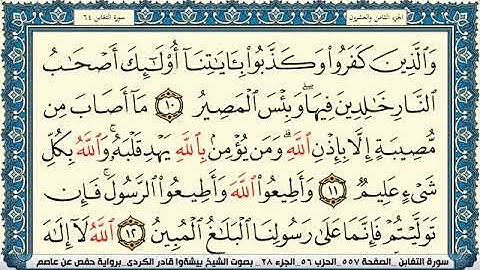 الجزء الثامن والعشرون
سورة التغابن ٦٤
وَالَّذِينَ كَفَرُوا۟ وَكَذَّبُوا۟ بِـَٔايَـٰتِنَآ أُو۟لَـٰٓئِكَ أَصْحَـٰبُ
النَّارِ خَـٰلِدِينَ فِيهَا ۖ وَبِئْسَ الْمَصِيرُ ١٠ مَآ أَصَابَ مِن
مُّصِيبَةٍ إِلَّا بِإِذْنِ اللَّهِ ۗ وَمَن يُؤْمِنۢ بِاللَّهِ يَهْدِ قَلْبَهُۥ ۚ وَاللَّهُ بِكُلِّ
شَىْءٍ عَلِيمٌ ١١ وَأَطِيعُوا۟ اللَّهَ وَأَطِيعُوا۟ الرَّسُولَ ۚ فَإِن
تَوَلَّيْتُمْ فَإِنَّمَا عَلَىٰ رَسُولِنَا الْبَلَـٰغُ الْمُبِينُ ١٢ اللَّهُ لَآ إِلَـٰهَ
سورة التغابن _ الصفحة ٥٥٧ _ الحزب ٥٦ _ الجزء ٢٨ _ بصوت الشيخ بيشةوا قادر الكردى _ برواية حفص عن عاصم